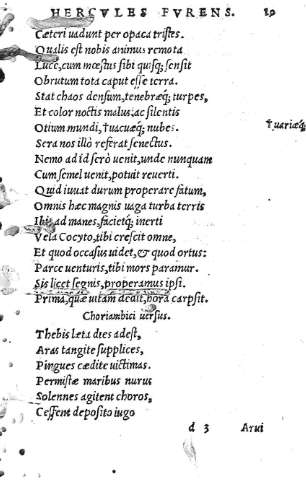 HERCVLES FVRENS. 29
Cæteri uadunt per opaca tristes.
Qualis est nobis animus remota
Luce, cum mœstus sibi quisq; sensit
Obrutum tota caput esse terra.
Stat chaos densum, tenebræq; turpes,
Et color noctis malus: ac silentis
Otium mundi, †uacuæq; nubes. †uariæq;
Sera nos illò referat senectus.
Nemo ad id serò uenit, unde nunquam
Cum semel uenit, potuit reuerti.
Quid iuuat durum properare fatum,
Omnis hæc magnis uaga turba terris
Ibit ad manes, facietq; inerti
Vela Cocyto, tibi crescit omne,
Et quod occasus uidet, & quod ortus:
Parce uenturis, tibi mors paramur.
Sis licet segnis, properamus ipsi.
Prima, quæ uitam dedit, hora carpsit.
Choriambici uersus.
Thebis læta dies adest,
Aras tangite supplices,
Pingues cædite uictimas.
Permistæ maribus nurus
Solennes agitent choros,
Cessent deposito iugo
d 3 Arui